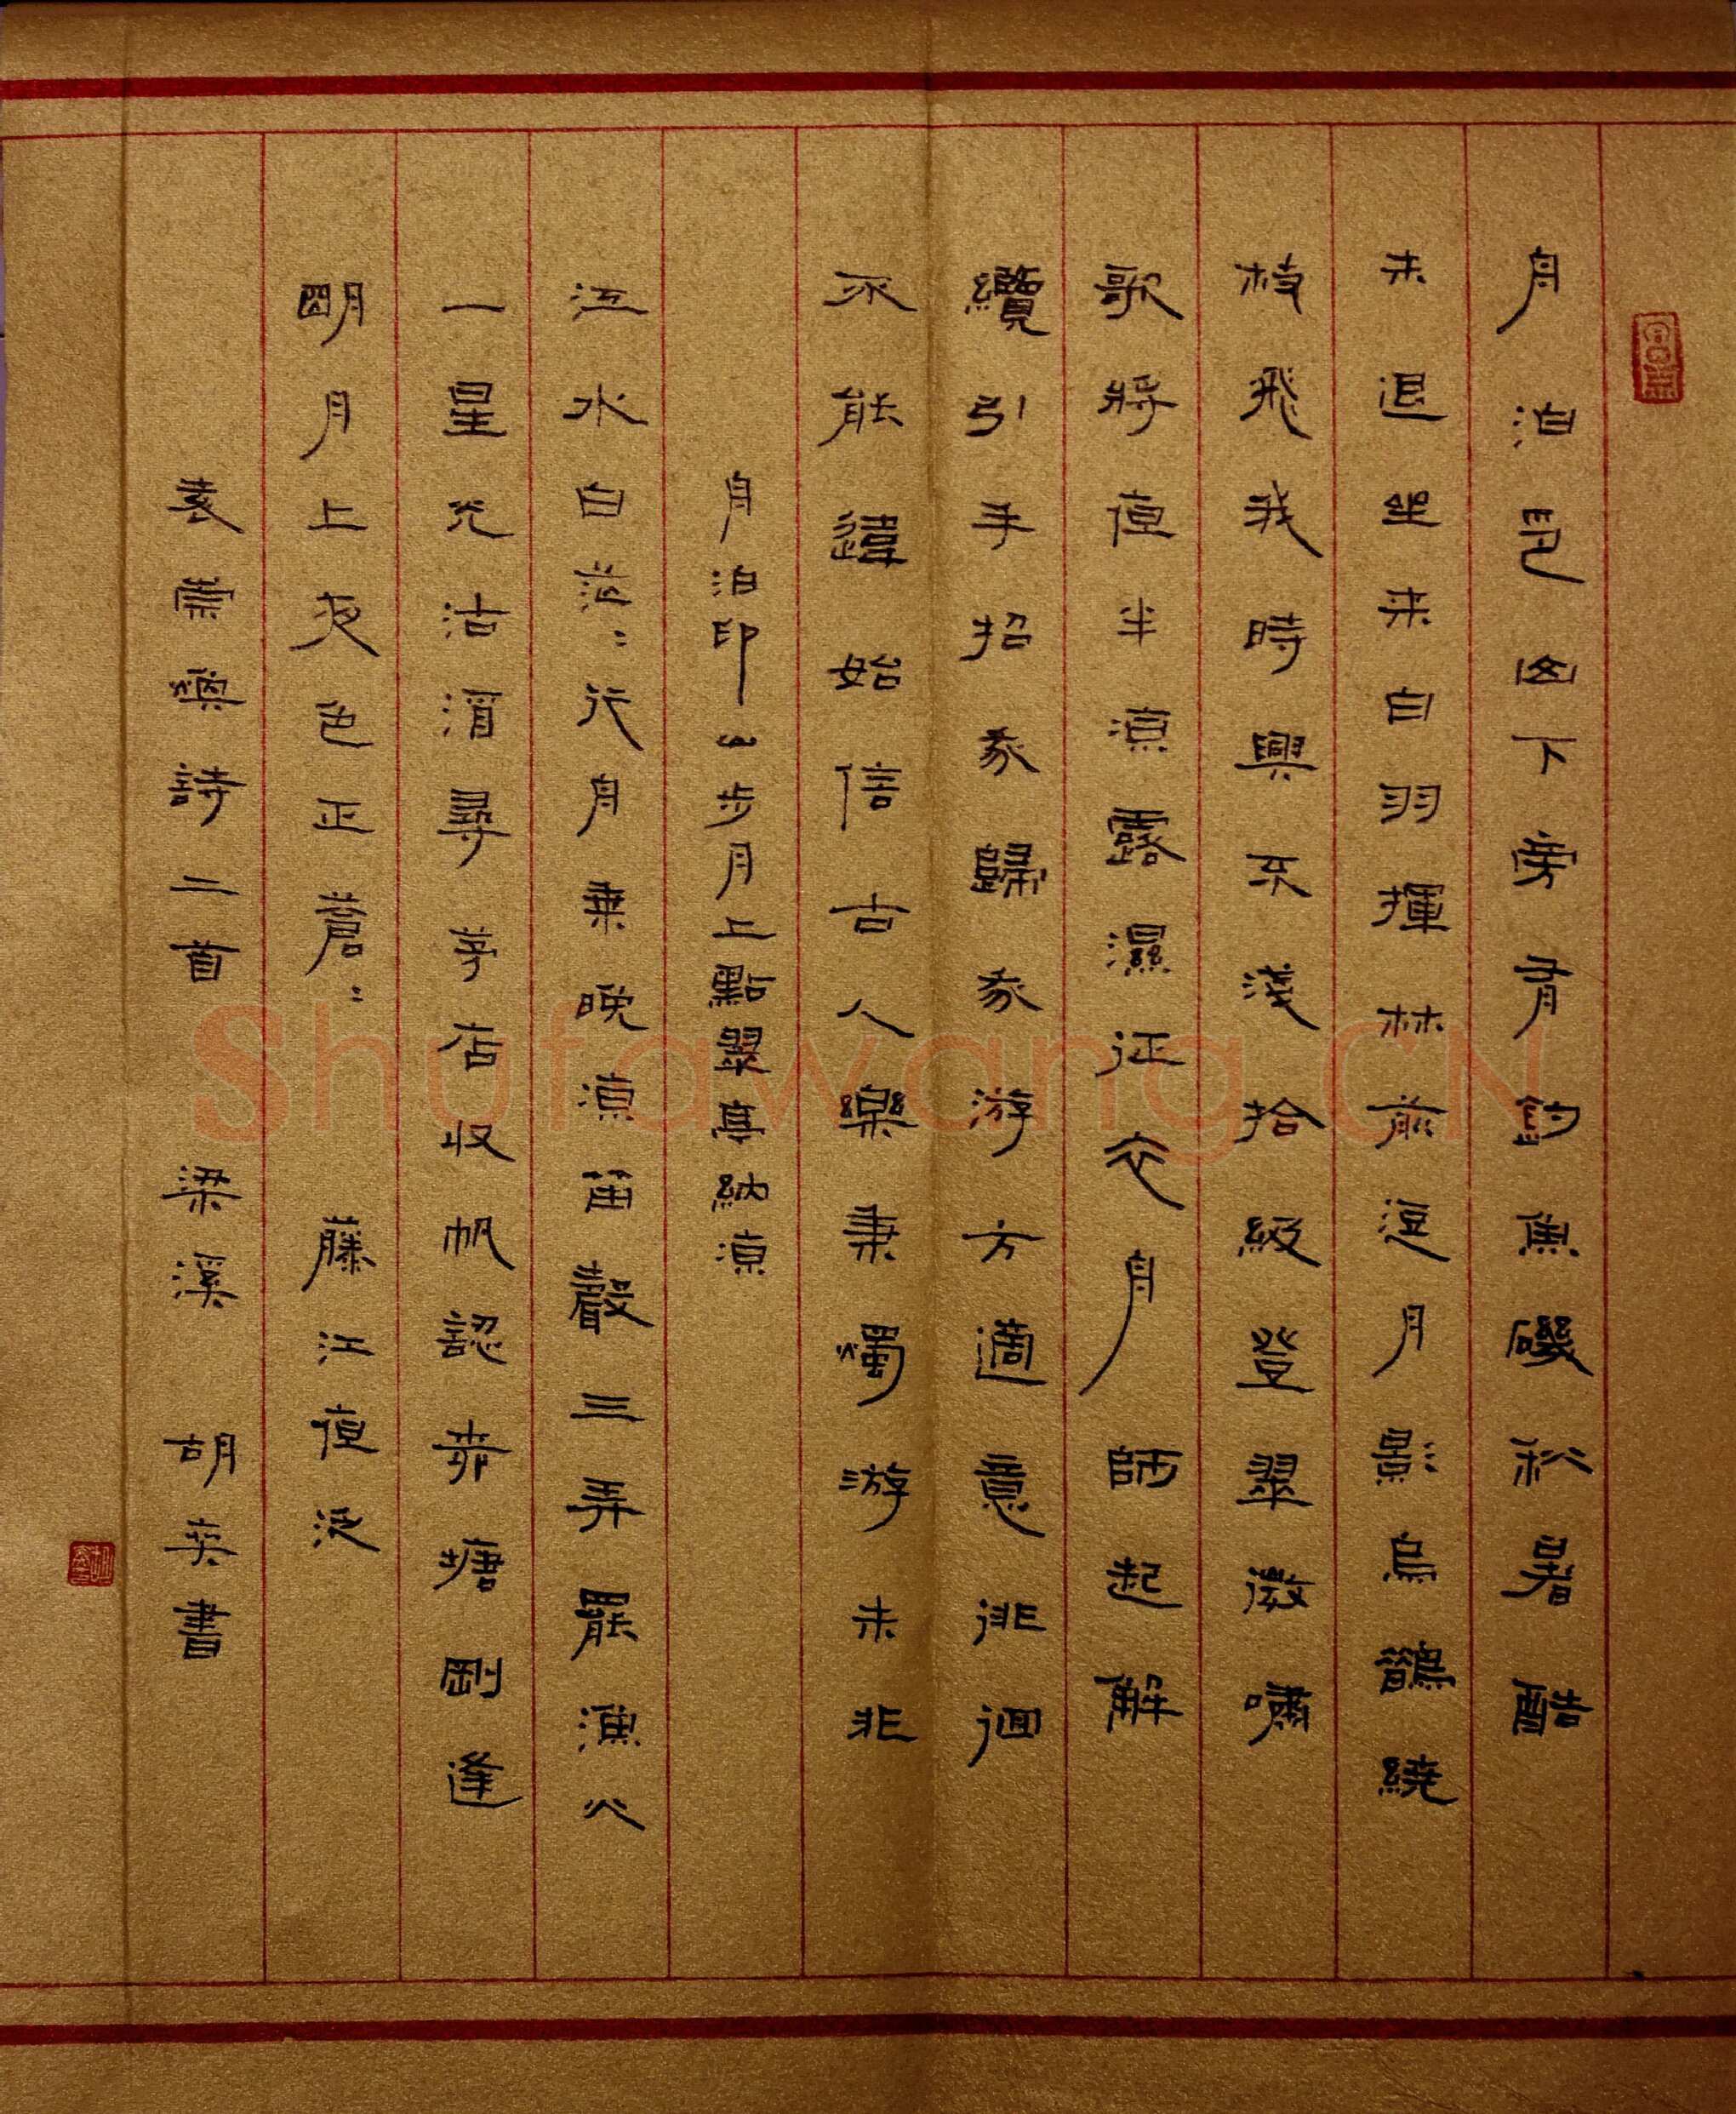 舟泊邑山下旁有釣魚磯秋暑酷
未退坐来白羽揮林前逗月影烏鵲繞
枝飛我時興不淺拾級登翠微嘯
歌將夜半涼露濕征衣舟師起解
纜引手招我歸我游方適意徘徊
不能違始信古人樂秉燭游未非
舟泊印山步月上點翠亭納涼
江水白茫:行舟乘晚涼笛聲三弄罷漁火
一星光沽酒尋茅店收帆認葑塘剛逢
明月上夜色正蒼: 藤江夜泛
袁崇煥詩二首 梁溪 胡奕書
Shufawang.CN